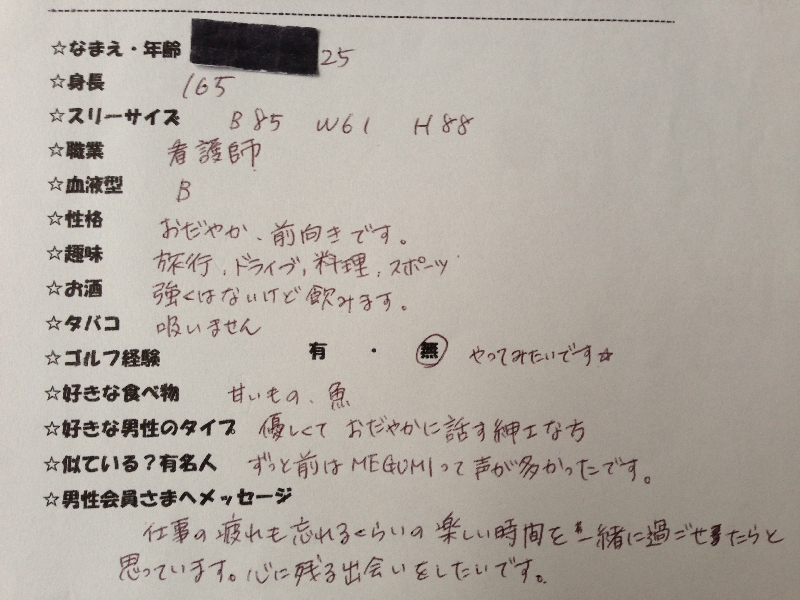 ☆なまえ・年齢 25
☆身長 165
☆スリーサイズ B85 W61 H88
☆職業 看護師
☆血液型 B
☆性格 おだやか、前向きです。
☆趣味 旅行、ドライブ、料理、スポーツ
☆お酒 強くはないけど飲みます。
☆タバコ 吸いません
☆ゴルフ経験 有 ・ 無 やってみたいです☆
☆好きな食べ物 甘いもの、魚
☆好きな男性のタイプ 優しくて おだやかに話す紳士な方
☆似ている？有名人 ずっと前はMEGUMIって声が多かったです。
☆男性会員さまへメッセージ
仕事の疲れも忘れるくらいの楽しい時間を一緒に過ごせたらと
思っています。心に残る出会いをしたいです。